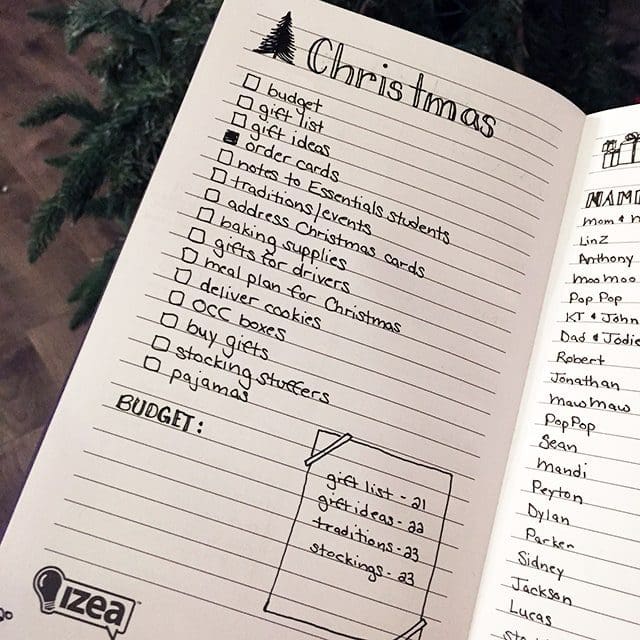 Christmas
budget
gift list
gift ideas
order cards
notes to Essentials students
traditions/events
address Christmas cards
baking supplies
gifts for drivers
meal plan for Christmas
deliver cookies
OCC boxes
buy gifts
stocking stuffers
pajamas
BUDGET:
gift list - 21
gift ideas - 22
traditions - 23
stockings - 23
izea
Mom &
LinZ
Anthony
MooMoo
Pop Pop
KT & John
Dad & Jodie
Robert
Jonathan
MawMaw
PopPop
Sean
Mandi
Peyton
Dylan
Parker
Sidney
Jackson
Lucas